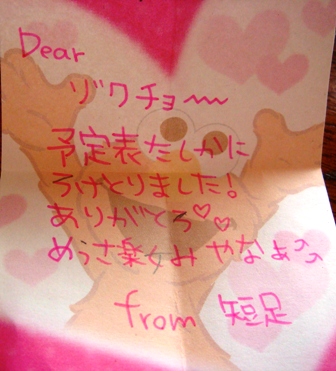 Dear
ゾクチョ〜〜
予定表たしかに
うけとりました!
ありがとう♡♡
めっさ楽しみやなぁ^^
from 短足